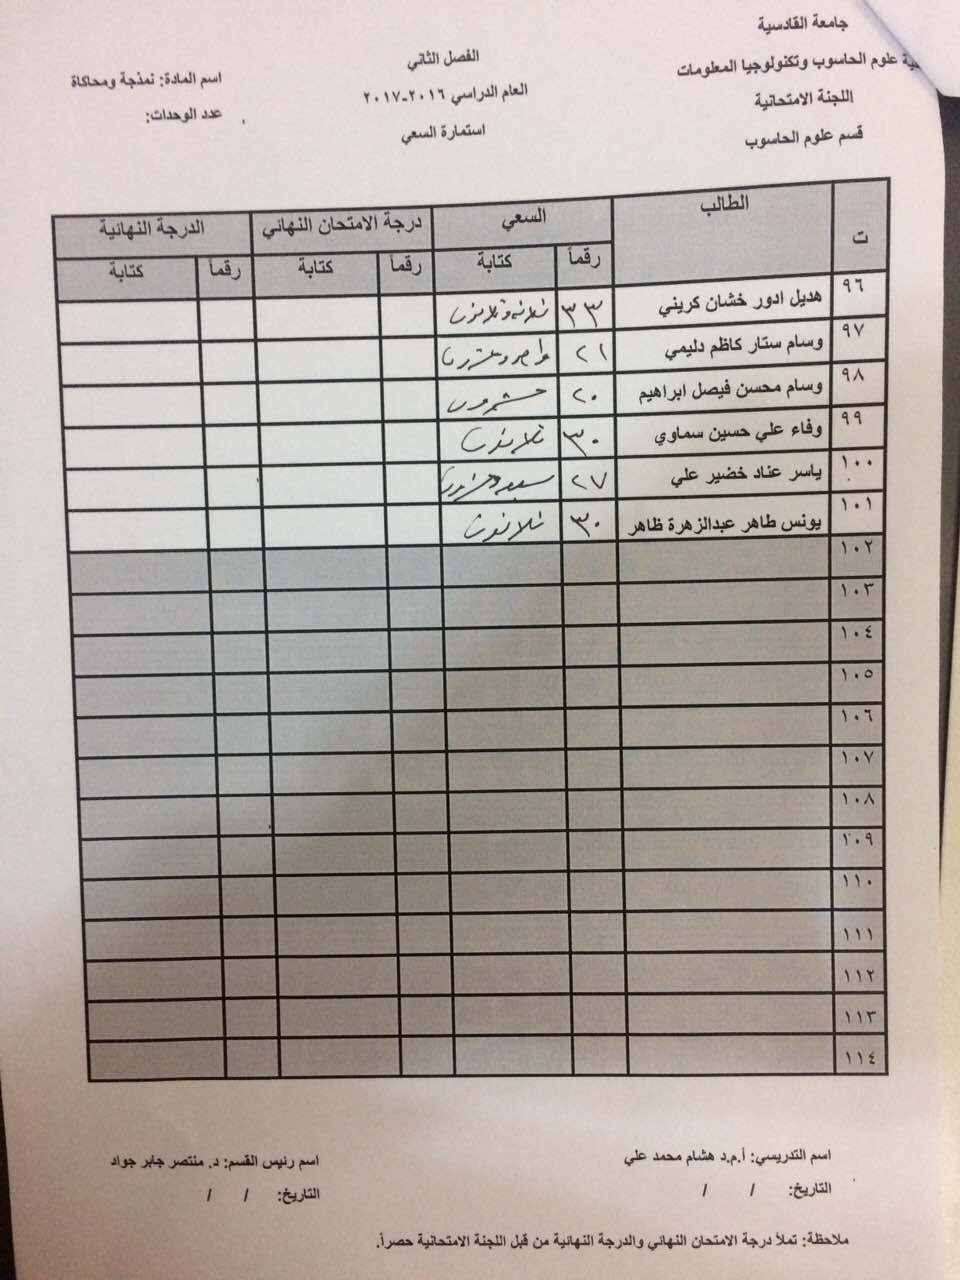 جامعة القادسية
ية علوم الحاسوب وتكنولوجيا المعلومات
اللجنة الامتحانية
قسم علوم الحاسوب
الفصل الثاني
العام الدراسي ٢٠١٦-٢٠١٧
استمارة السعي
اسم المادة: نمذجة ومحاكاة
عدد الوحدات:
ت الطالب السعي درجة الامتحان النهائي الدرجة النهائية
رقماً كتابة رقماً كتابة رقماً كتابة
٩٦ هديل ادور خشان كريني ٣٣ ثلاثه وثلاثون
٩٧ وسام ستار كاظم دليمي ٢١ واحد وعشرون
٩٨ وسام محسن فيصل ابراهيم ٢٠ عشرون
٩٩ وفاء علي حسين سماوي ٣٠ ثلاثون
١٠٠ ياسر عناد خضير علي ٢٧ سبعه وعشرون
١٠١ يونس طاهر عبدالزهرة ظاهر ٣٠ ثلاثون
١٠٢
١٠٣
١٠٤
١٠٥
١٠٦
١٠٧
١٠٨
١٠٩
١١٠
١١١
١١٢
١١٣
١١٤
اسم التدريسي: أ.م.د هشام محمد علي
التاريخ: / /
اسم رئيس القسم: د. منتصر جابر جواد
التاريخ: / /
ملاحظة: تملأ درجة الامتحان النهائي والدرجة النهائية من قبل اللجنة الامتحانية حصراً.